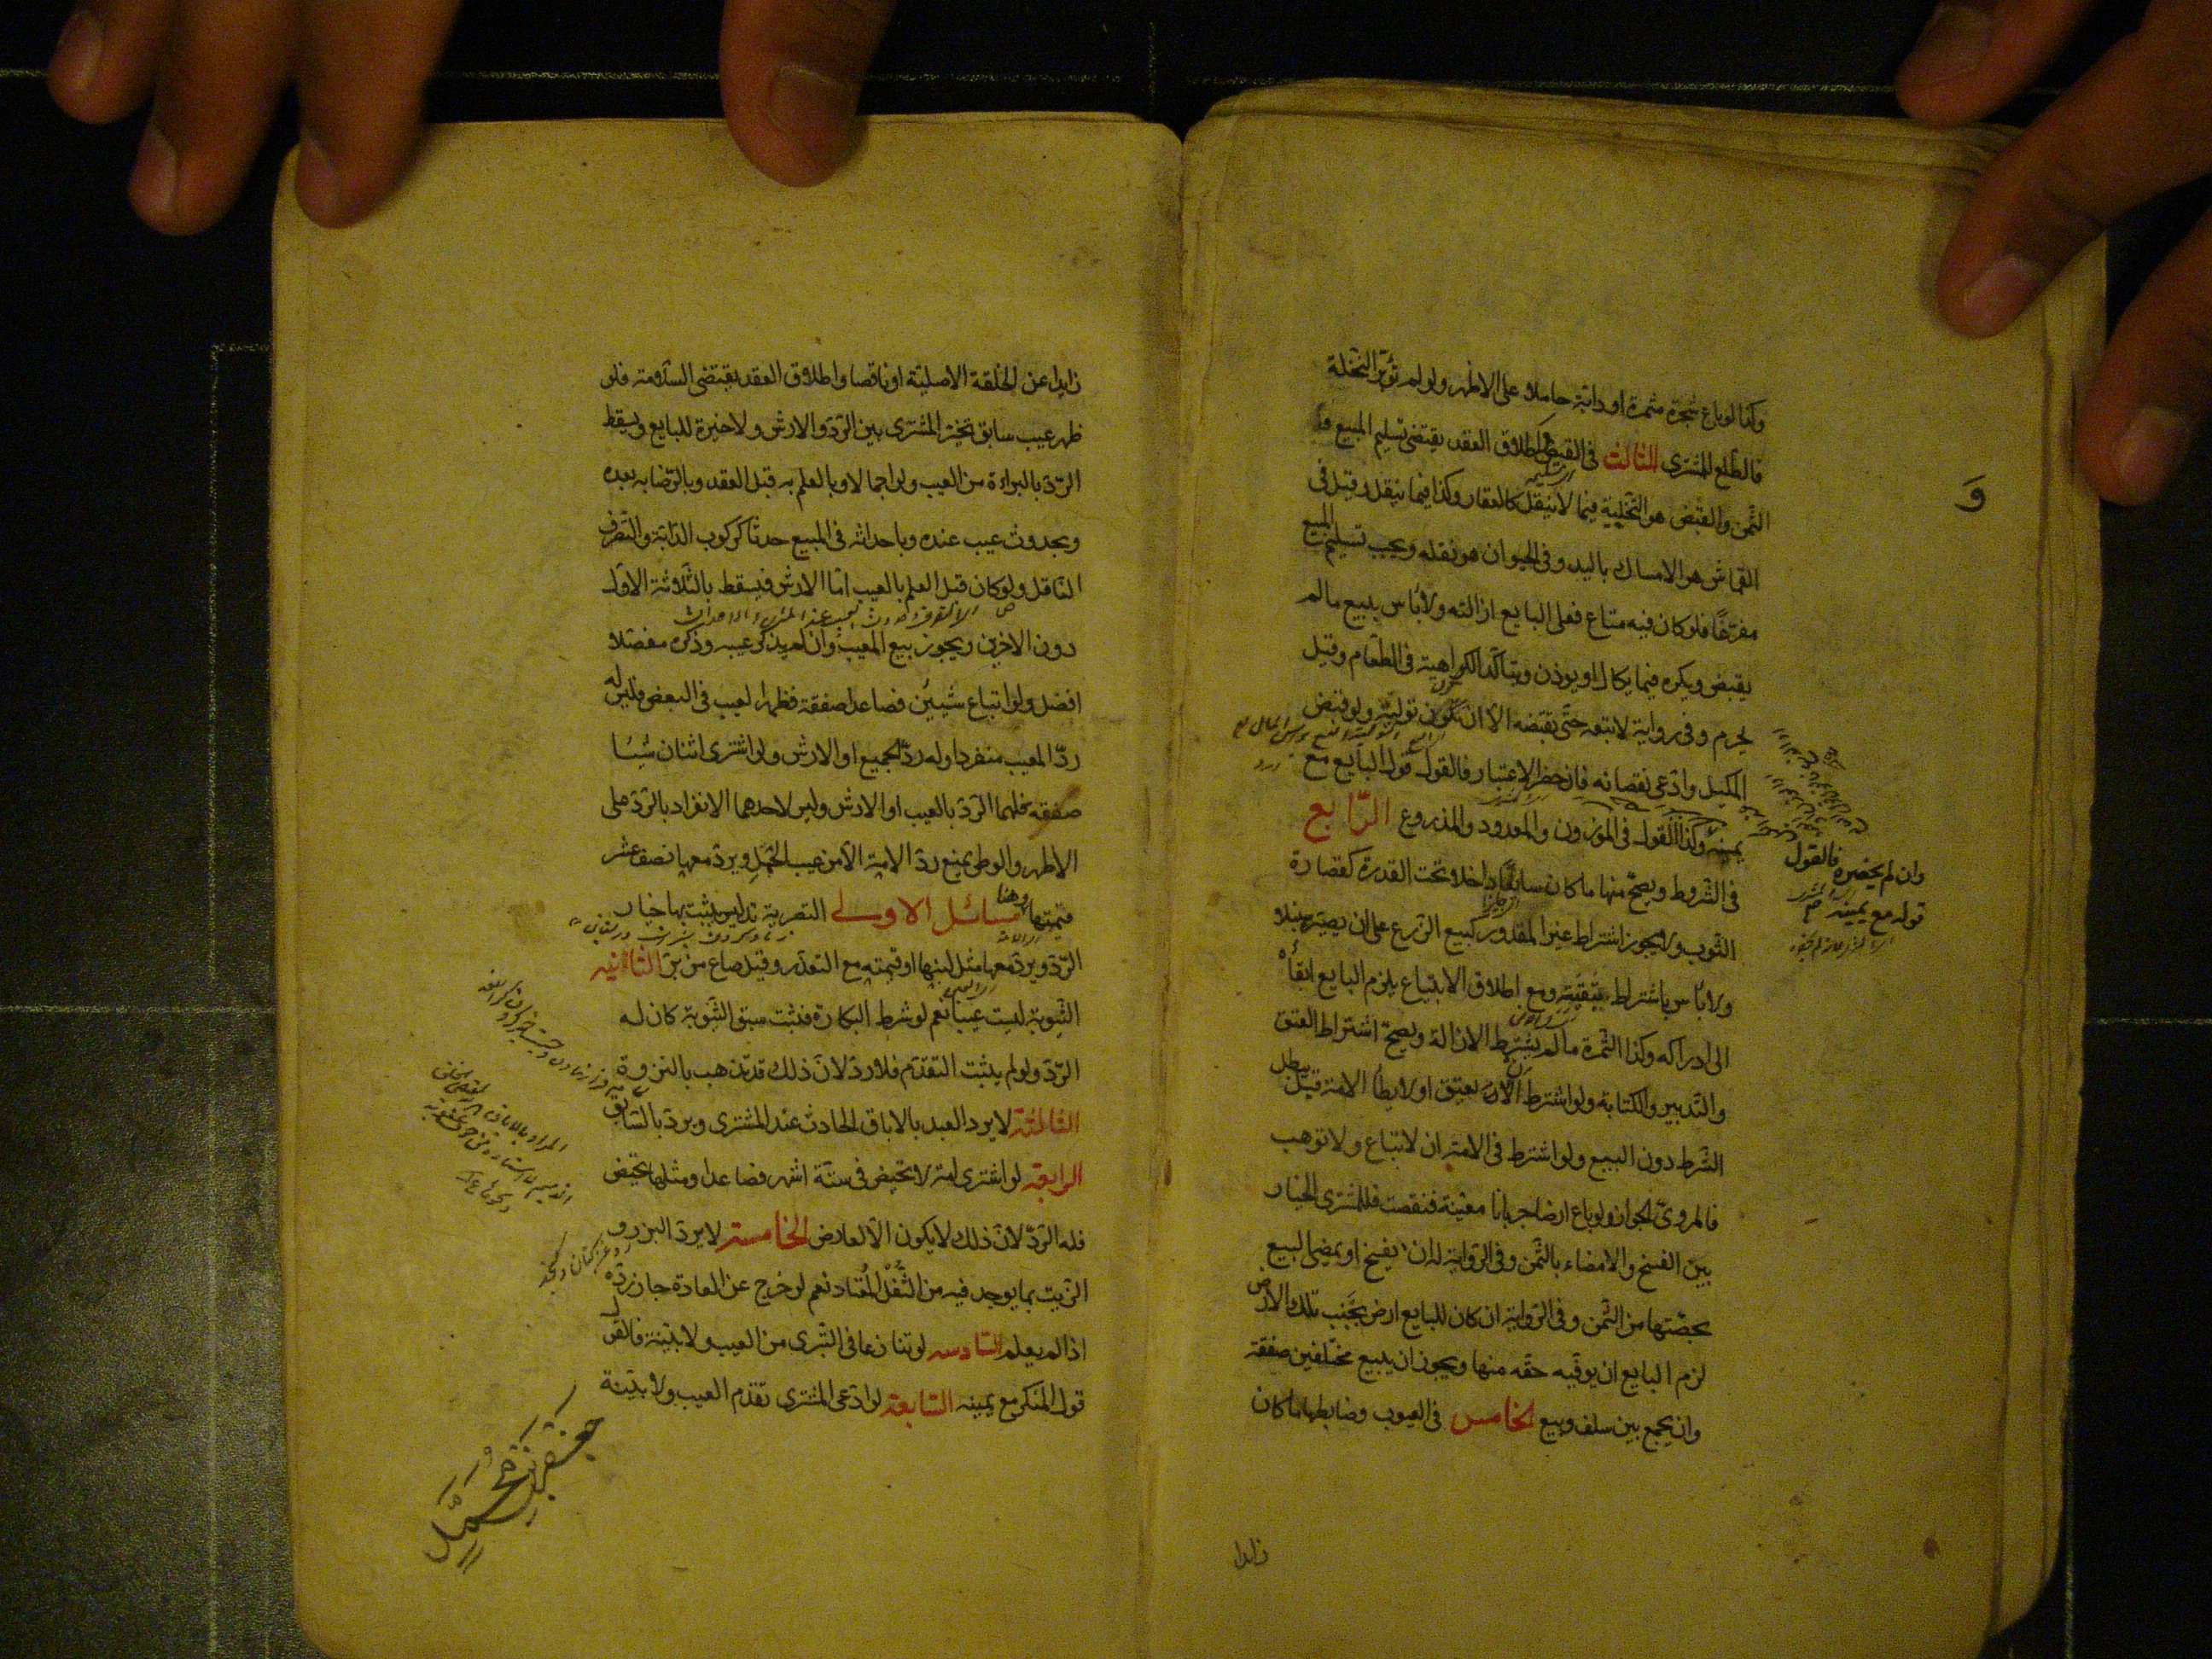 وكذا لوباع شجرة مثمرة او دابة حاملا على الاظهر ولو لم تؤبر النخلة
فالطلع للمشتري الثالث في القبض اطلاق العقد يقتضي تسليم المبيع و
الثمن والقبض هو التخلية فيما لا ينقل كالعقار وكذا فيما ينقل وقيل في
القماش هو الامساك باليد وفي الحيوان هو نقله ويجب تسليم المبيع
مفرغا فلو كان فيه متاع فعلى البايع ازالته ولا باس ببيع ما لم
يقبض ويكره فيما يكال او يوزن ويتاكد الكراهية في الطعام وقيل
يحرم وفي رواية لا تبعه حتى تقبضه الا ان تكون تولية ولو قبض
المكيل وادعى نقصانه فان حضر الاعتبار فالقول قول البايع مع
يمينه وكذا القول في الموزون والمعدود والمذروع الرابع
وان لم يحضره فالقول
قوله مع يمينه صح
في الشروط ويصح منها ما كان سايغا داخلا تحت القدرة كقصارة
الثوب ولا يجوز اشتراط غير المقدور كبيع الزرع على ان يصيره سنبلا
ولا باس باشتراط تبقيته ومع اطلاق الابتياع يلزم البايع ابقاءه
الى ادراكه وكذا الثمرة ما لم يشترط الازالة ويصح اشتراط العتق
والتدبير والكتابة ولو اشترط الا يعتق او لا يطأ الامة قيل يبطل
الشرط دون البيع ولو اشترط في الامة ان لا تباع ولا توهب
فالمروي الجواز ولو باع ارضا جربانا معينة فنقصت فللمشتري الخيار
بين الفسخ والامضاء بالثمن وفي الرواية له ان يفسخ او يمضي البيع
بحصتها من الثمن وفي الرواية ان كان للبايع ارض بجنب تلك الارض
لزم البايع ان يوفيه حقه منها ويجوز ان يبيع مختلفين صفقة
وان يجمع بين سلف وبيع الخامس في العيوب وضابطها ما كان
زايدا
زايدا عن الخلقة الاصلية او ناقصا واطلاق العقد يقتضي السلامة فلو
ظهر عيب سابق تخير المشتري بين الرد والارش ولا خيرة للبايع ويسقط
الرد بالبراءة من العيب ولو اجمالا وبالعلم به قبل العقد وبالرضا به بعده
وبحدوث عيب عنده وباحداثه في المبيع حدثا كركوب الدابة والتصرف
الناقل ولو كان قبل العلم بالعيب اما الارش فيسقط بالثلاثة الاول
دون الاخرين ويجوز بيع المعيب وان لم يذكر عيبه وذكره مفصلا
افضل ولو ابتاع شيئين فصاعدا صفقة فظهر العيب في البعض فليس له
رد المعيب منفردا وله رد الجميع او الارش ولو اشترى اثنان شيئا
صفقة فلهما الرد بالعيب او الارش وليس لاحدهما الانفراد بالرد على
الاظهر والوطي يمنع رد الامة الا من عيب الحبل ويرد معها نصف عشر
قيمتها وهنا مسائل الاولى التصرية تدليس يثبت بها خيار
الرد ويرد معها مثل لبنها او قيمته مع التعذر وقيل صاع من بر الثانية
الثيوبة ليست عيبا نعم لو شرط البكارة فثبت سبق الثيوبة كان له
الرد ولو لم يثبت التقدم فلا رد لان ذلك قد يذهب بالنزوة
الثالثة لا يرد العبد بالاباق الحادث عند المشتري ويرد بالسابق
الرابعة لو اشترى امة لا تحيض في ستة اشهر فصاعدا ومثلها تحيض
فله الرد لان ذلك لا يكون الا لعارض الخامسة لا يرد البزر و
الزيت بما يوجد فيه من الثفل المعتاد نعم لو خرج عن العادة جاز رده
اذا لم يعلم السادسة لو تنازعا في التبري من العيب ولا بينة فالقول
قول المنكر مع يمينه السابعة لو ادعى المشتري تقدم العيب ولا بينة
جعفر بن محمد